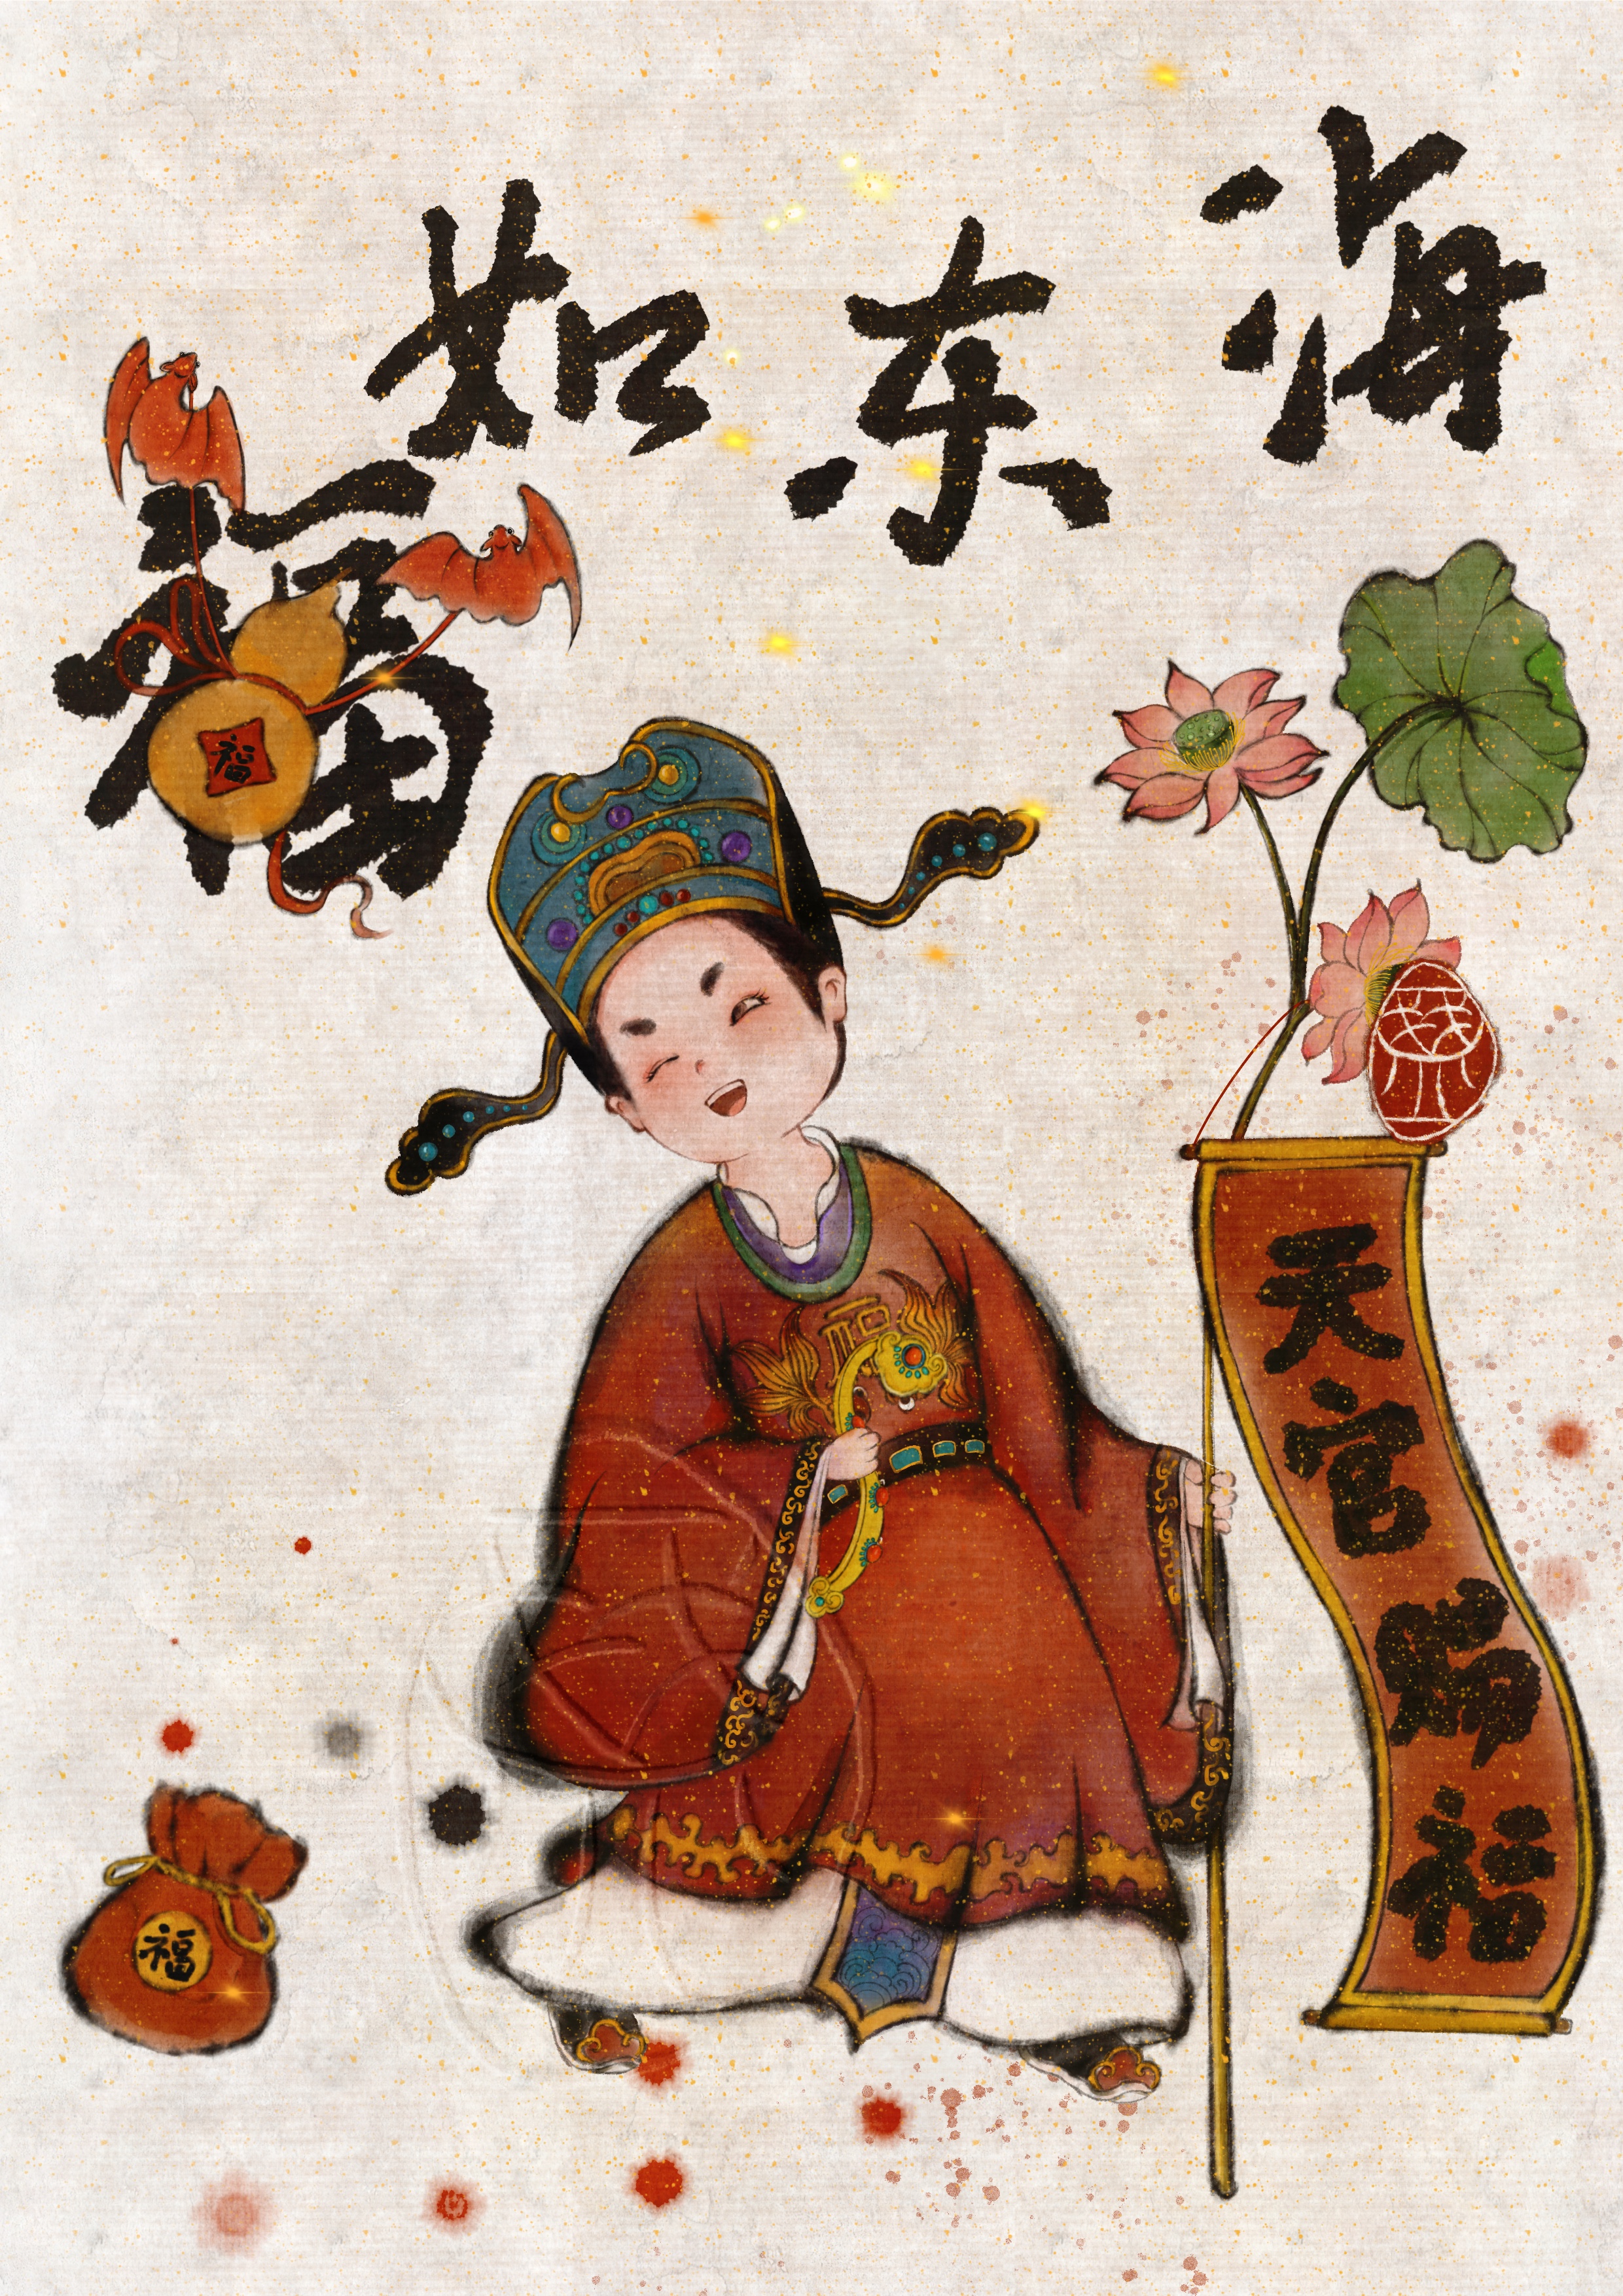 福如东海
福
福
天官赐福
福